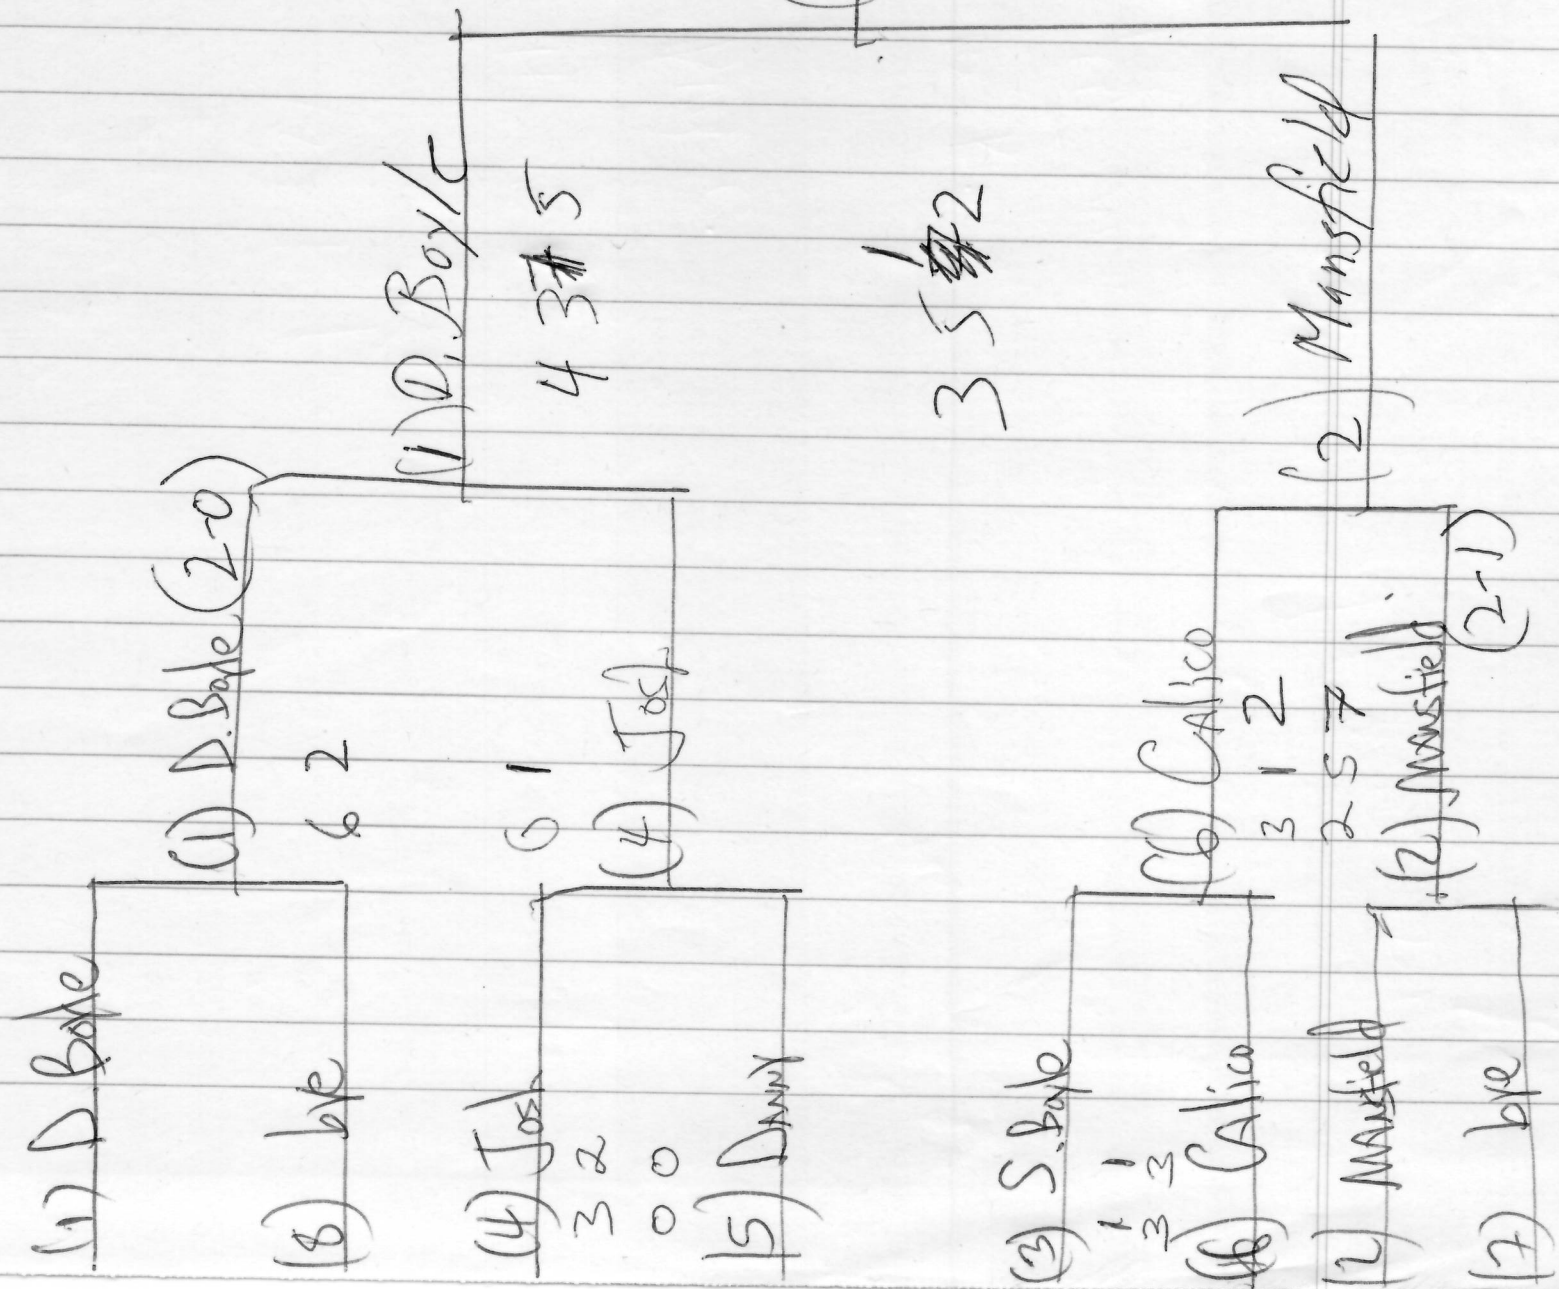 (1) D Boyle
(8) bye
(4) Josh
3 2
0 0
(5) Danny
(3) S. Boyle
1 1
3 3
(6) CAlico
(2) MANsfield
(7) bye
(1) D. Boyle (2-0)
6 2
0 1
(4) Josh
(6) CAlico
3 1 2
2 5 7
(2) MANsfield (2-1)
(1) D. Boyle
4 3 5
3 5 1 2
(2) Mansfield